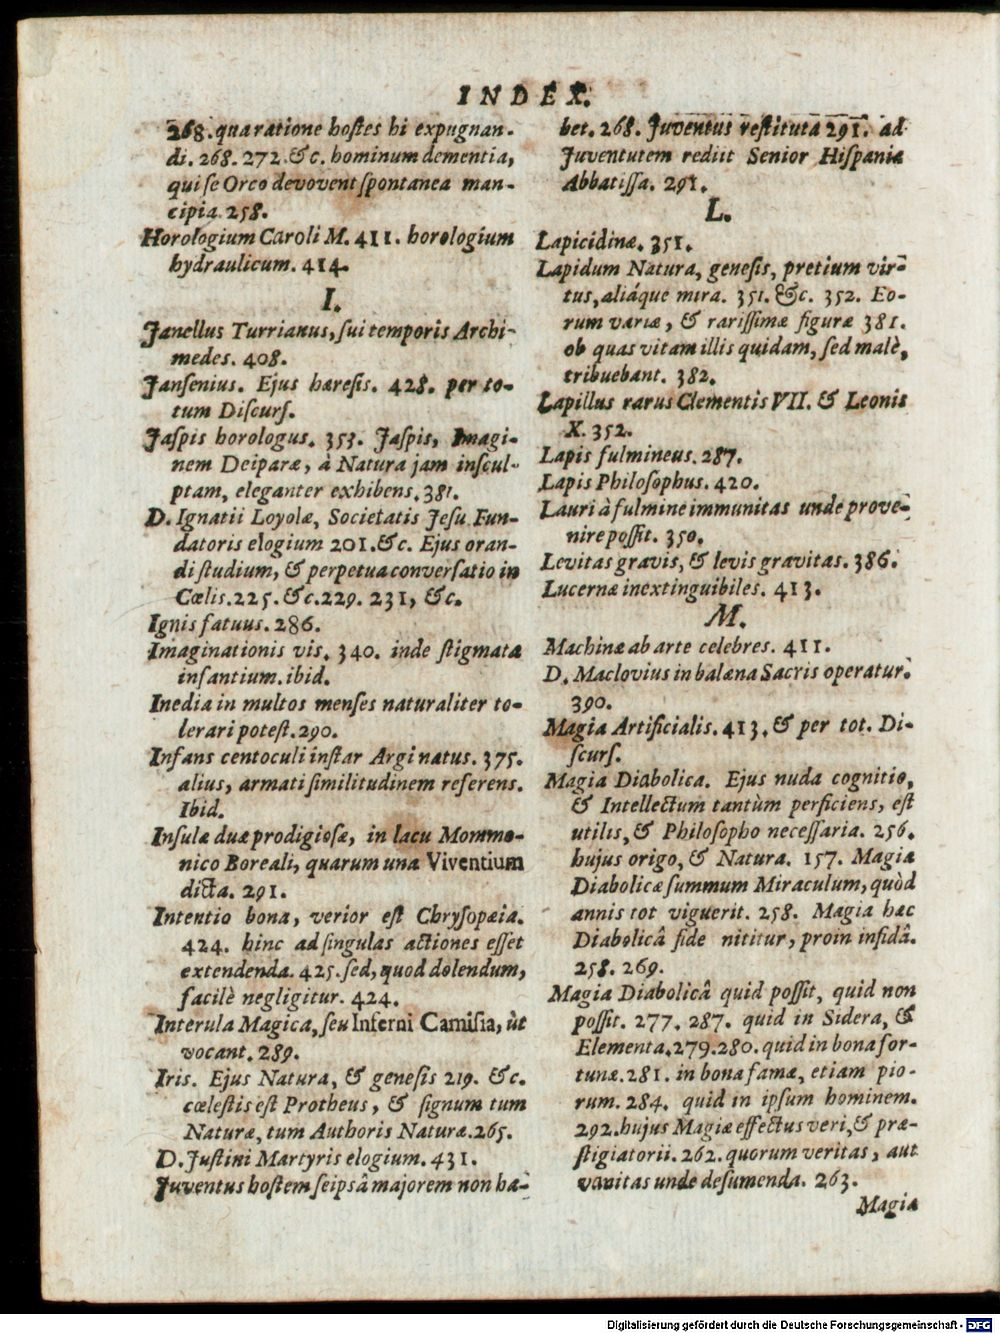 INDEX.
268. qua ratione hostes hi expugnan-
di. 268. 272. &c. hominum dementia,
qui se Orco devovent spontanea man-
cipia. 258.
Horologium Caroli M. 411. horologium
hydraulicum. 414.
I.
Janellus Turrianus, sui temporis Archi-
medes. 408.
Jansenius. Ejus hæresis. 428. per to-
tum Discurs.
Jaspis horologus. 353. Jaspis, Imagi-
nem Deiparæ, à Natura jam inscul-
ptam, eleganter exhibens. 381.
D. Ignatii Loyolæ, Societatis Jesu Fun-
datoris elogium 201. &c. Ejus oran-
di studium, & perpetua conversatio in
Cœlis. 225. &c. 229. 231, &c.
Ignis fatuus. 286.
Imaginationis vis. 340. inde stigmata
infantium. ibid.
Inedia in multos menses naturaliter to-
lerari potest. 290.
Infans centoculi instar Argi natus. 375.
alius, armati similitudinem referens.
Ibid.
Insulæ duæ prodigiosæ, in lacu Mommo-
nico Boreali, quarum una Viventium
dicta. 291.
Intentio bona, verior est Chrysopæia.
424. hinc ad singulas actiones esset
extendenda. 425. sed, quod dolendum,
facilè negligitur. 424.
Interula Magica, seu Inferni Camisia, ùt
vocant. 289.
Iris. Ejus Natura, & genesis 219. &c.
cœlestis est Protheus, & signum tum
Naturæ, tum Authoris Naturæ. 265.
D. Justini Martyris elogium. 431.
Juventus hostem seipsâ majorem non ha-
bet. 268. Juventus restituta 291. ad
Juventutem rediit Senior Hispania
Abbatissa. 291.
L.
Lapicidinæ. 351.
Lapidum Natura, genesis, pretium vir-
tus, aliáque mira. 351. &c. 352. Eo-
rum variæ, & rarissimæ figuræ 381.
ob quas vitam illis quidam, sed malè,
tribuebant. 382.
Lapillus rarus Clementis VII. & Leonis
X. 352.
Lapis fulmineus. 287.
Lapis Philosophus. 420.
Lauri à fulmine immunitas unde prove-
nire possit. 350.
Levitas gravis, & levis gravitas. 386.
Lucernæ inextinguibiles. 413.
M.
Machinæ ab arte celebres. 411.
D. Maclovius in balæna Sacris operatur.
390.
Magia Artificialis. 413. & per tot. Di-
scurs.
Magia Diabolica. Ejus nuda cognitio,
& Intellectum tantùm perficiens, est
utilis, & Philosopho necessaria. 256.
hujus origo, & Natura. 157. Magiæ
Diabolicæ summum Miraculum, quòd
annis tot viguerit. 258. Magia hæc
Diabolicâ fide nititur, proin infidâ.
258. 269.
Magia Diabolicâ quid possit, quid non
possit. 277. 287. quid in Sidera, &
Elementa. 279. 280. quid in bona for-
tunæ. 281. in bona famæ, etiam pio-
rum. 284. quid in ipsum hominem.
292. hujus Magiæ effectus veri, & præ-
stigiatorii. 262. quorum veritas, aut
vanitas unde desumenda. 263.
Magia
Digitalisierung gefördert durch die Deutsche Forschungsgemeinschaft - DFG